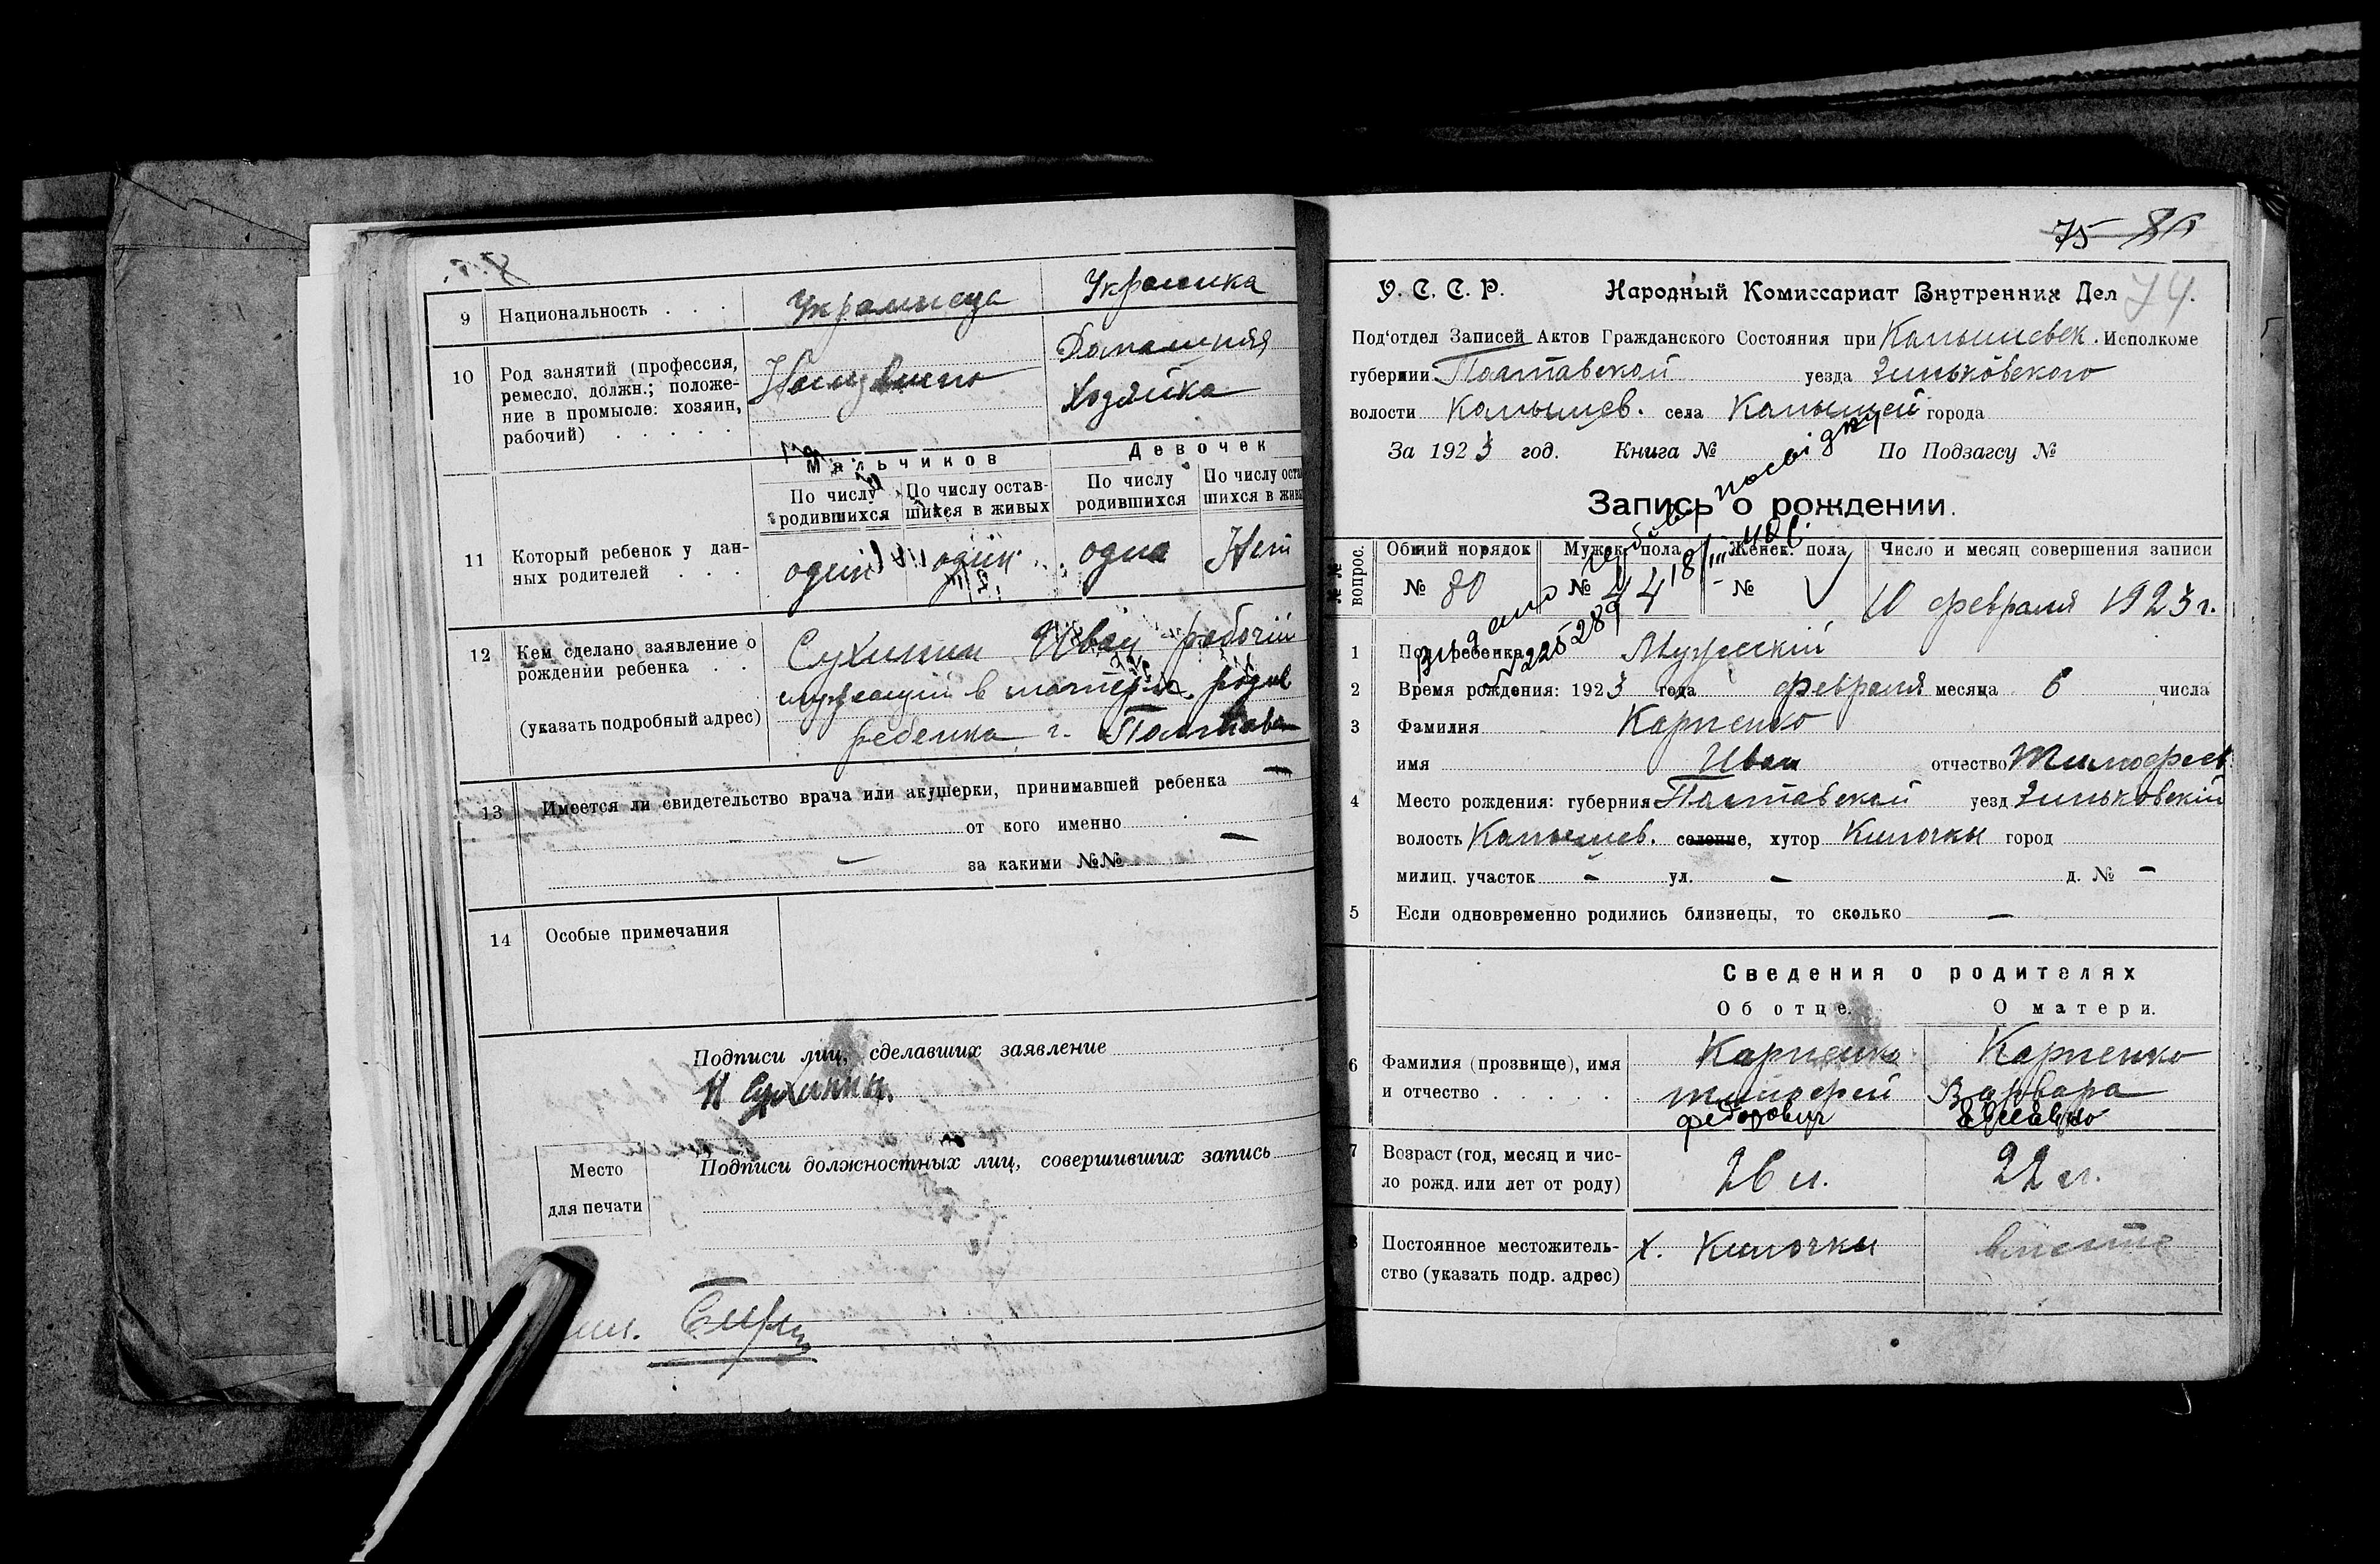 9 Национальность . . . Украинец Украинка
10 Род занятий (профессия,
ремесло, должн.; положе-
ние в промысле: хозяин,
рабочий) . . . . .
Домашняя
Хозяйка
Мальчиков Девочек
По числу родившихся
По числу остав-
шихся в живых
По числу родившихся
По числу оста
шихся в живы
11 Который ребенок у дан-
ных родителей . . .
один один одна Нет
12 Кем сделано заявление о
рождении ребенка . .
(указать подробный адрес)
Сухинин Иван рабочий
служащий в
ребенка г. Полтава
13 Имеется ли свидетельство врача или акушерки, принимавшей ребенка —
от кого именно
— за какими №№ —
14 Особые примечания
Подписи лиц, сделавших заявление
И Сухинин.
Место
для печати
Подписи должностных лиц, совершивших запись
75
74.
У. С. С. Р. Народный Комиссариат Внутренних Дел
Под'отдел Записей Актов Гражданского Состояния при Камышевск. Исполкоме
губернии Полтавской уезда Зиньковского
волости Камышев. села Камышей города
За 1923 год. Книга № По Подзагсу №
Запись о рождении.
№№ вопрос.
Общий порядок Мужск. пола Женск. пола Число и месяц совершения записи
№ 80 № 44 № 10 февраля 1923 г.
1 Пол ребенка Мужеский
2 Время рождения: 1923 года февраля месяца 6 числа
3 Фамилия Карпенко
имя Иван отчество Тимофеев
4 Место рождения: губерния Полтавской уезд Зиньковский
волость Камышев. селение, хутор Килочки город
милиц. участок - ул. - д. № -
5 Если одновременно родились близнецы, то сколько —
Сведения о родителях
Об отце. О матери.
6 Фамилия (прозвище), имя
и отчество . . . . .
Карпенко
Тимофей
Федорович
Карпенко
Варвара
7 Возраст (год, месяц и чис-
ло рожд. или лет от роду)
26 л. 22 л.
8 Постоянное местожитель-
ство (указать подр. адрес)
х. Килочки вместе